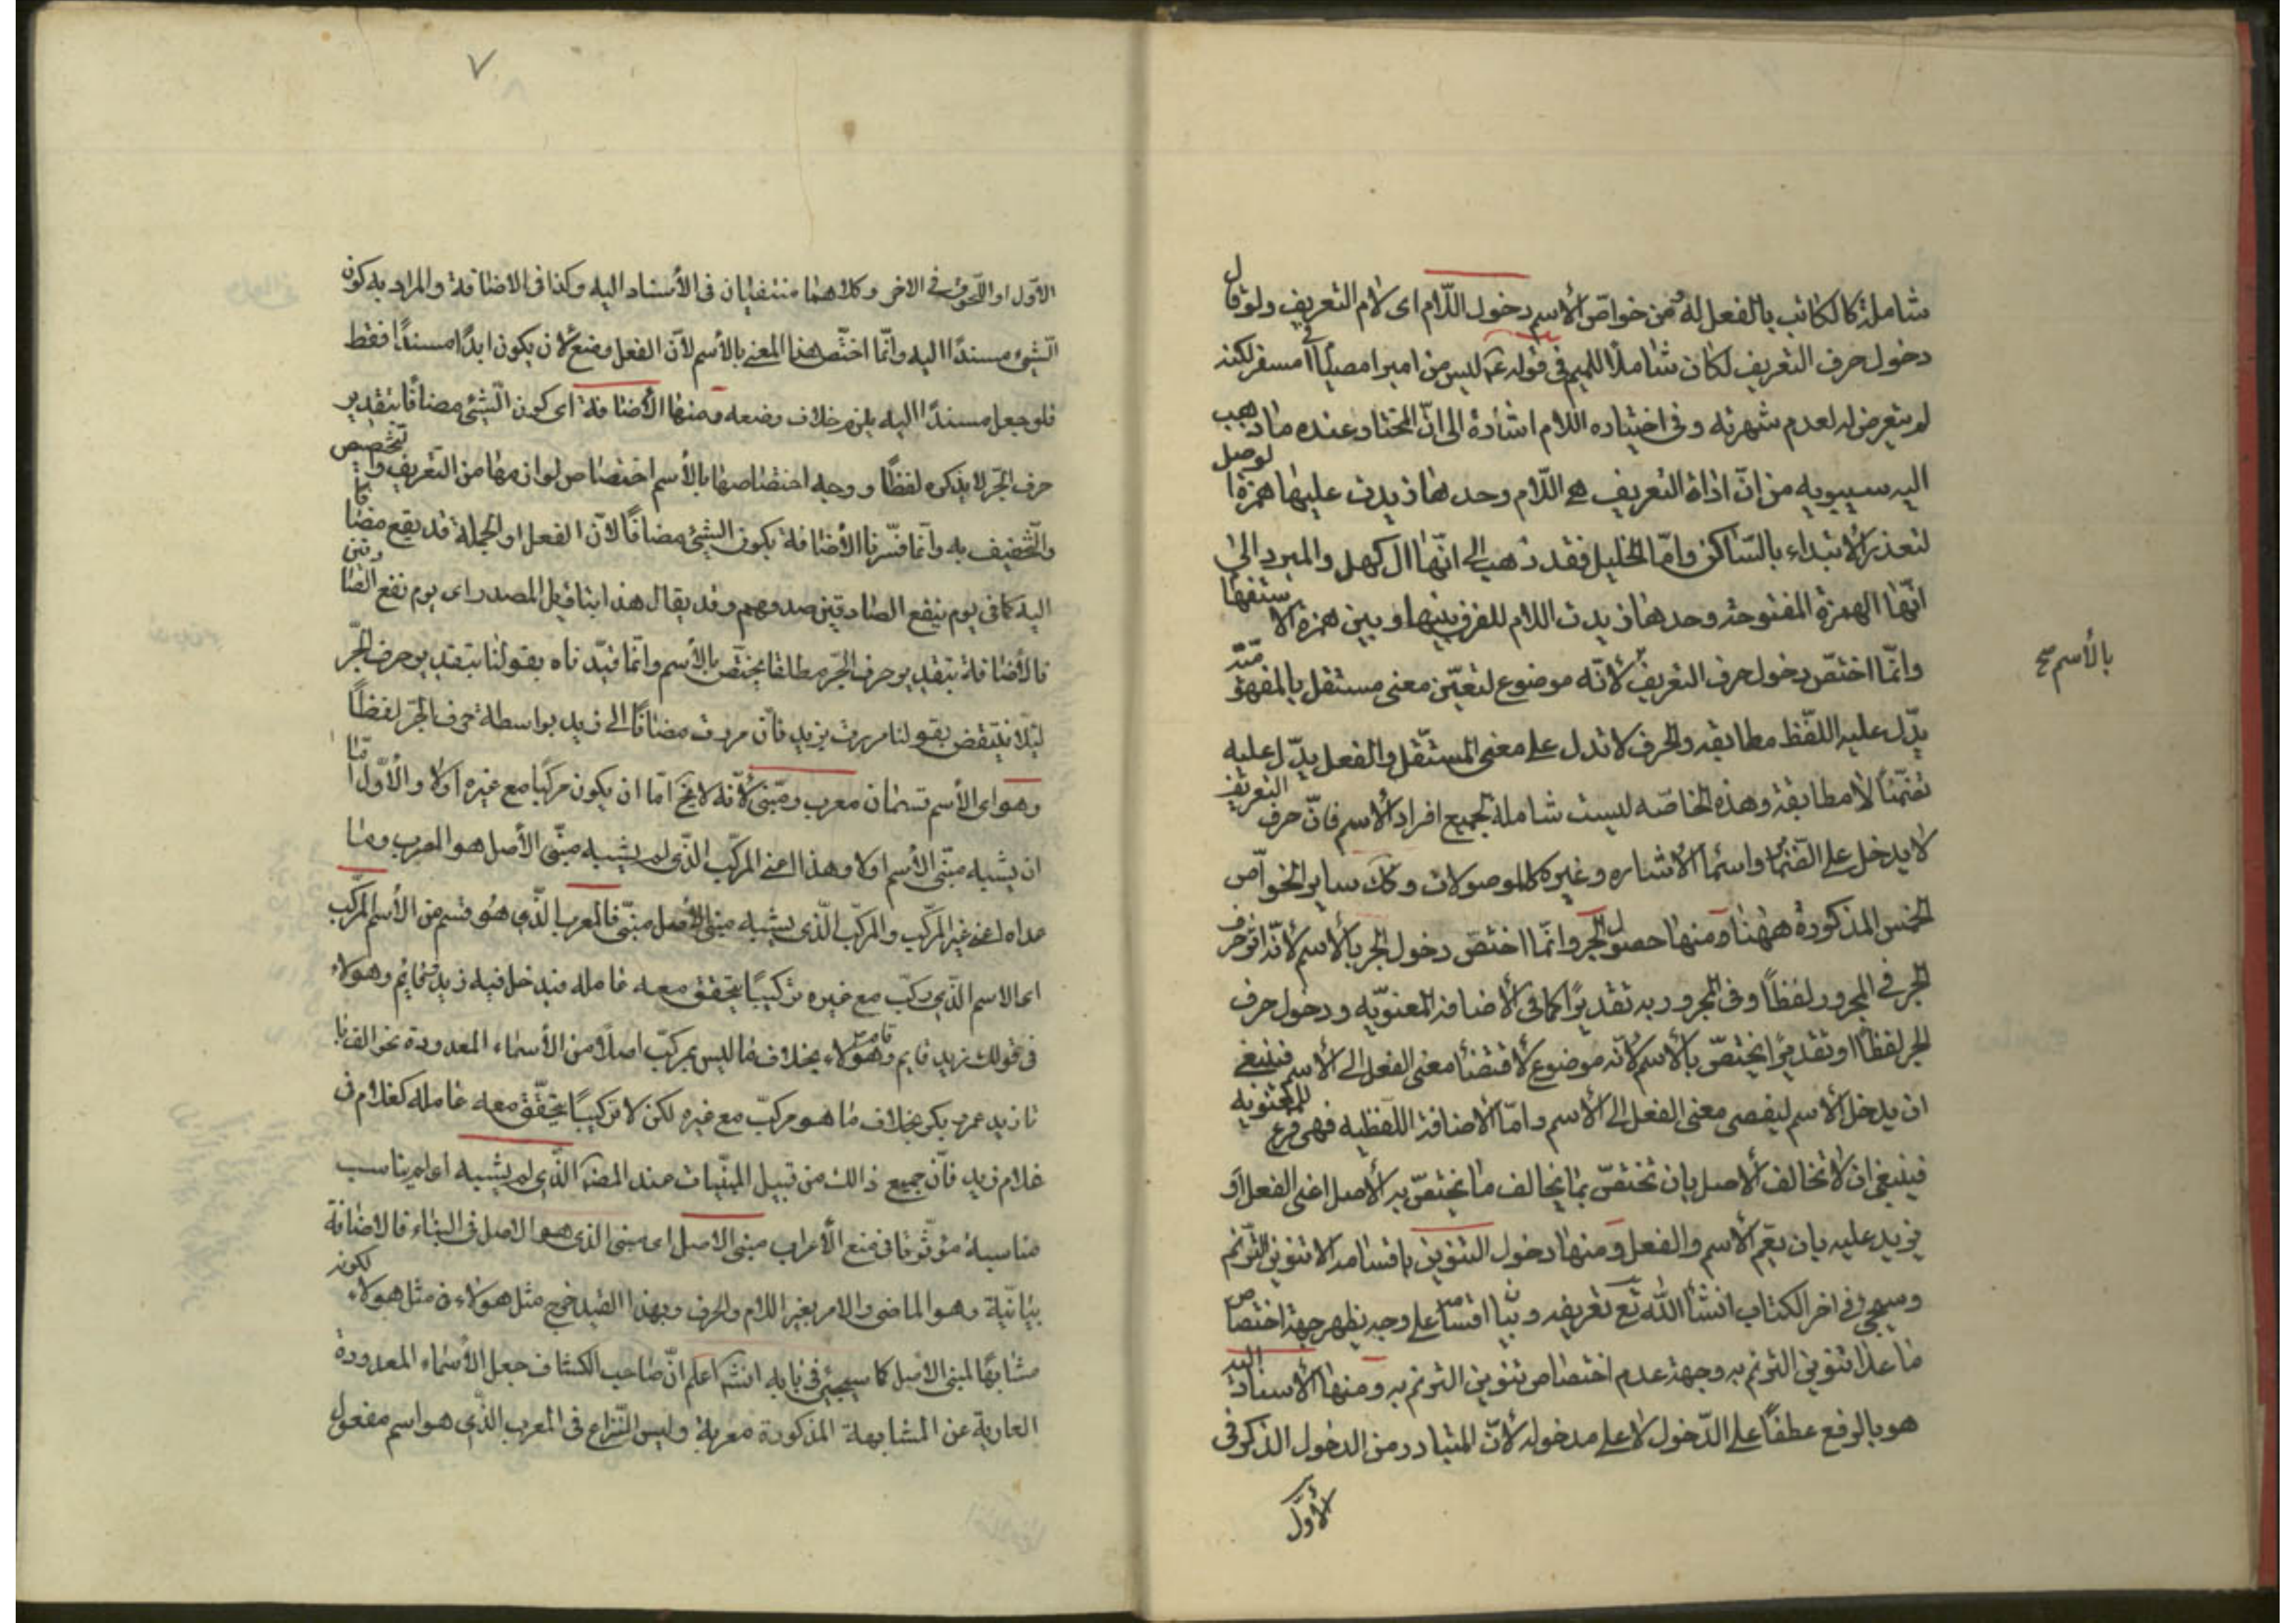 شاملة كالكاتب بالفعل له ومن خواصّ الأسم دخول اللّام اى لام التعريف ولو قال
دخول حرف التعريف لكان شاملاً للميم فى قوله عم ليس من امبر امصيام فى امسفر لكنه
لم يتعرض له لعدم شهرته وفى اختياره اللام اشارة الى انّ المختار عنده ما ذهب
اليه سيبويه من انّ اداة التعريف هى اللّام وحدها زيدت عليها همزة الوصل
لتعذر الابتداء بالسّاكن وامّا الخليل فقد ذهب الى انّها ال كهل والمبرد الى
انّها الهمزة المفتوحة وحدها زيدت اللام للفرق بينها وبين همزة الاستفهام
وانّما اختصّ دخول حرف التعريف لأنّه موضوع لتعيّن معنى مستقل بالمفهومية
بالأسم صح
يدّل عليه اللّفظ مطابقه والحرف لا تدل على معنى المستقّل والفعل يدّل عليه
تضمّناً لا مطابقة وهذه الخاصّه ليست شاملة لجميع افراد الأسم فانّ حرف التعريف
لا يدخل على الضمائر واسماء الأشاره وغيره كالموصولات وكك ساير الخواّص
الخمس المذكورة ههنا ومنها حصول الجر وانّما اختصّ دخول الجر بالأسم لأنّه اثر حرف
الجر فى المجرور لفظاً وفى المجرور به تقديرًا كما فى الأضافة المعنويّه ودخول حرف
الجر لفظاً او تقديرًا يختصّ بالأسم لأنّه موضوع لأفضاء معنى الفعل الى الأسم فينبغى
ان يدخل الأسم ليفضى معنى الفعل الى الأسم وامّا الأضافة اللّفظيه فهى فرع للمعنويه
فينبغى ان لا تخالف الأصل بان تختصّ بما يخالف ما يختصّ به الأصل اعنى الفعل او
يزيد عليه بان يعّم الأسم والفعل ومنها دخول التنوين باقسامه الا تنوين التّرنم
وسيجئ فى اخر الكتاب انشأ الله تع تعريفه وبيان اقسامه على وجه يظهر جهة اختصاص
ما عدا تنوين الترنم به وجهة عدم اختصاص تنوين الترنم به ومنها الأسناد اليه
هو بالرفع عطفاً على الدّخول لا على مدخوله لأنّ المتبادر من الدخول الذكر فى
الأوّل
٧
الأوّل او اللّحوق فى الاخر وكلاهما منتفيان فى الأسناد اليه وكذا فى الاضافة والمراد به كون
الّشئ مسندًا اليه وانّما اختّص هذا المعنى بالأسم لأن الفعل وضع لأن يكون ابدًا مسندًا فقط
فلو جعل مسندًا اليه يلزم خلاف وضعه ومنها الأضافة اى كون الّشئ مضافًا بتقدير
حرف الجّر لا بذكره لفظًا ووجه اختصاصها بالأسم اختصاص لوازمها من التعريف والتخصيص
والتّخفيف به وانّما فسّرنا الأضافة بكون الشئ مضافًا لأن الفعل او الجملة قد يقع مضافا
اليه كما فى يوم ينفع الصادقين صدقهم وقد يقال هذا بتاويل المصدر اى يوم نفع الصادقين
فالأضافة بتقدير حرف الجّر مطلقا يختّص بالأسم وانّما قيّدناه بقولنا بتقدير حرف الجّر
لئلّا ينتقض بقولنا مررت بزيد فانّ مررت مضافًا الى زيد بواسطة حرف الجّر لفظًا
وهو اى الأسم قسمان معرب ومبّنى لأنّه لا يخ امّا ان يكون مركّبا مع غيره اولا والأوّل امّا
ان يشبه مبّنى الأسم اولا وهذا اعنى المركّب الذّى لم يشبه مبّنى الأصل هو المعرب وما
عداه اعنى غير المركّب والمركّب الّذى يشبه مبنى الأصل مبنّى فالمعرب الّذى هو قسم من الأسم المركّب
اى الاسم الذّى ركّب مع غيره تركيبًا يتحقق معه عامله فيدخل فيه زيد قائم وهولاء
فى قولك زيد قايم وقام هولاء بخلاف ما ليس بمركّب اصلًا من الأسماء المعدودة نحو الف با
تا زيد عمرو بكر بخلاف ما هو مركّب مع غيره لكن لا تركيبًا يتحقّق معه عامله كغلام فى
غلام زيد فانّ جميع ذالك من قبيل المبنّيات عند المصنف الذّى لم يشبه اى لم يناسب
مناسبة مؤثّرة فى منع الأعراب مبنى الاصل اى مبنى الذى هو الاصل فى البناء فالاضافة
بيانيّة وهو الماضى والامر بغير اللام والحرف وبهذا القيد خرج مثل هولاء فى مثل هولاء لكونه
مشابهًا لمبنى الاصل كما سيجئ فى بابه انشه اعلم انّ صاحب الكشاف جعل الأسماء المعدودة
العارية عن المشابهة المذكورة معربة وليس النّزاع فى المعرب الذّى هو اسم مفعول